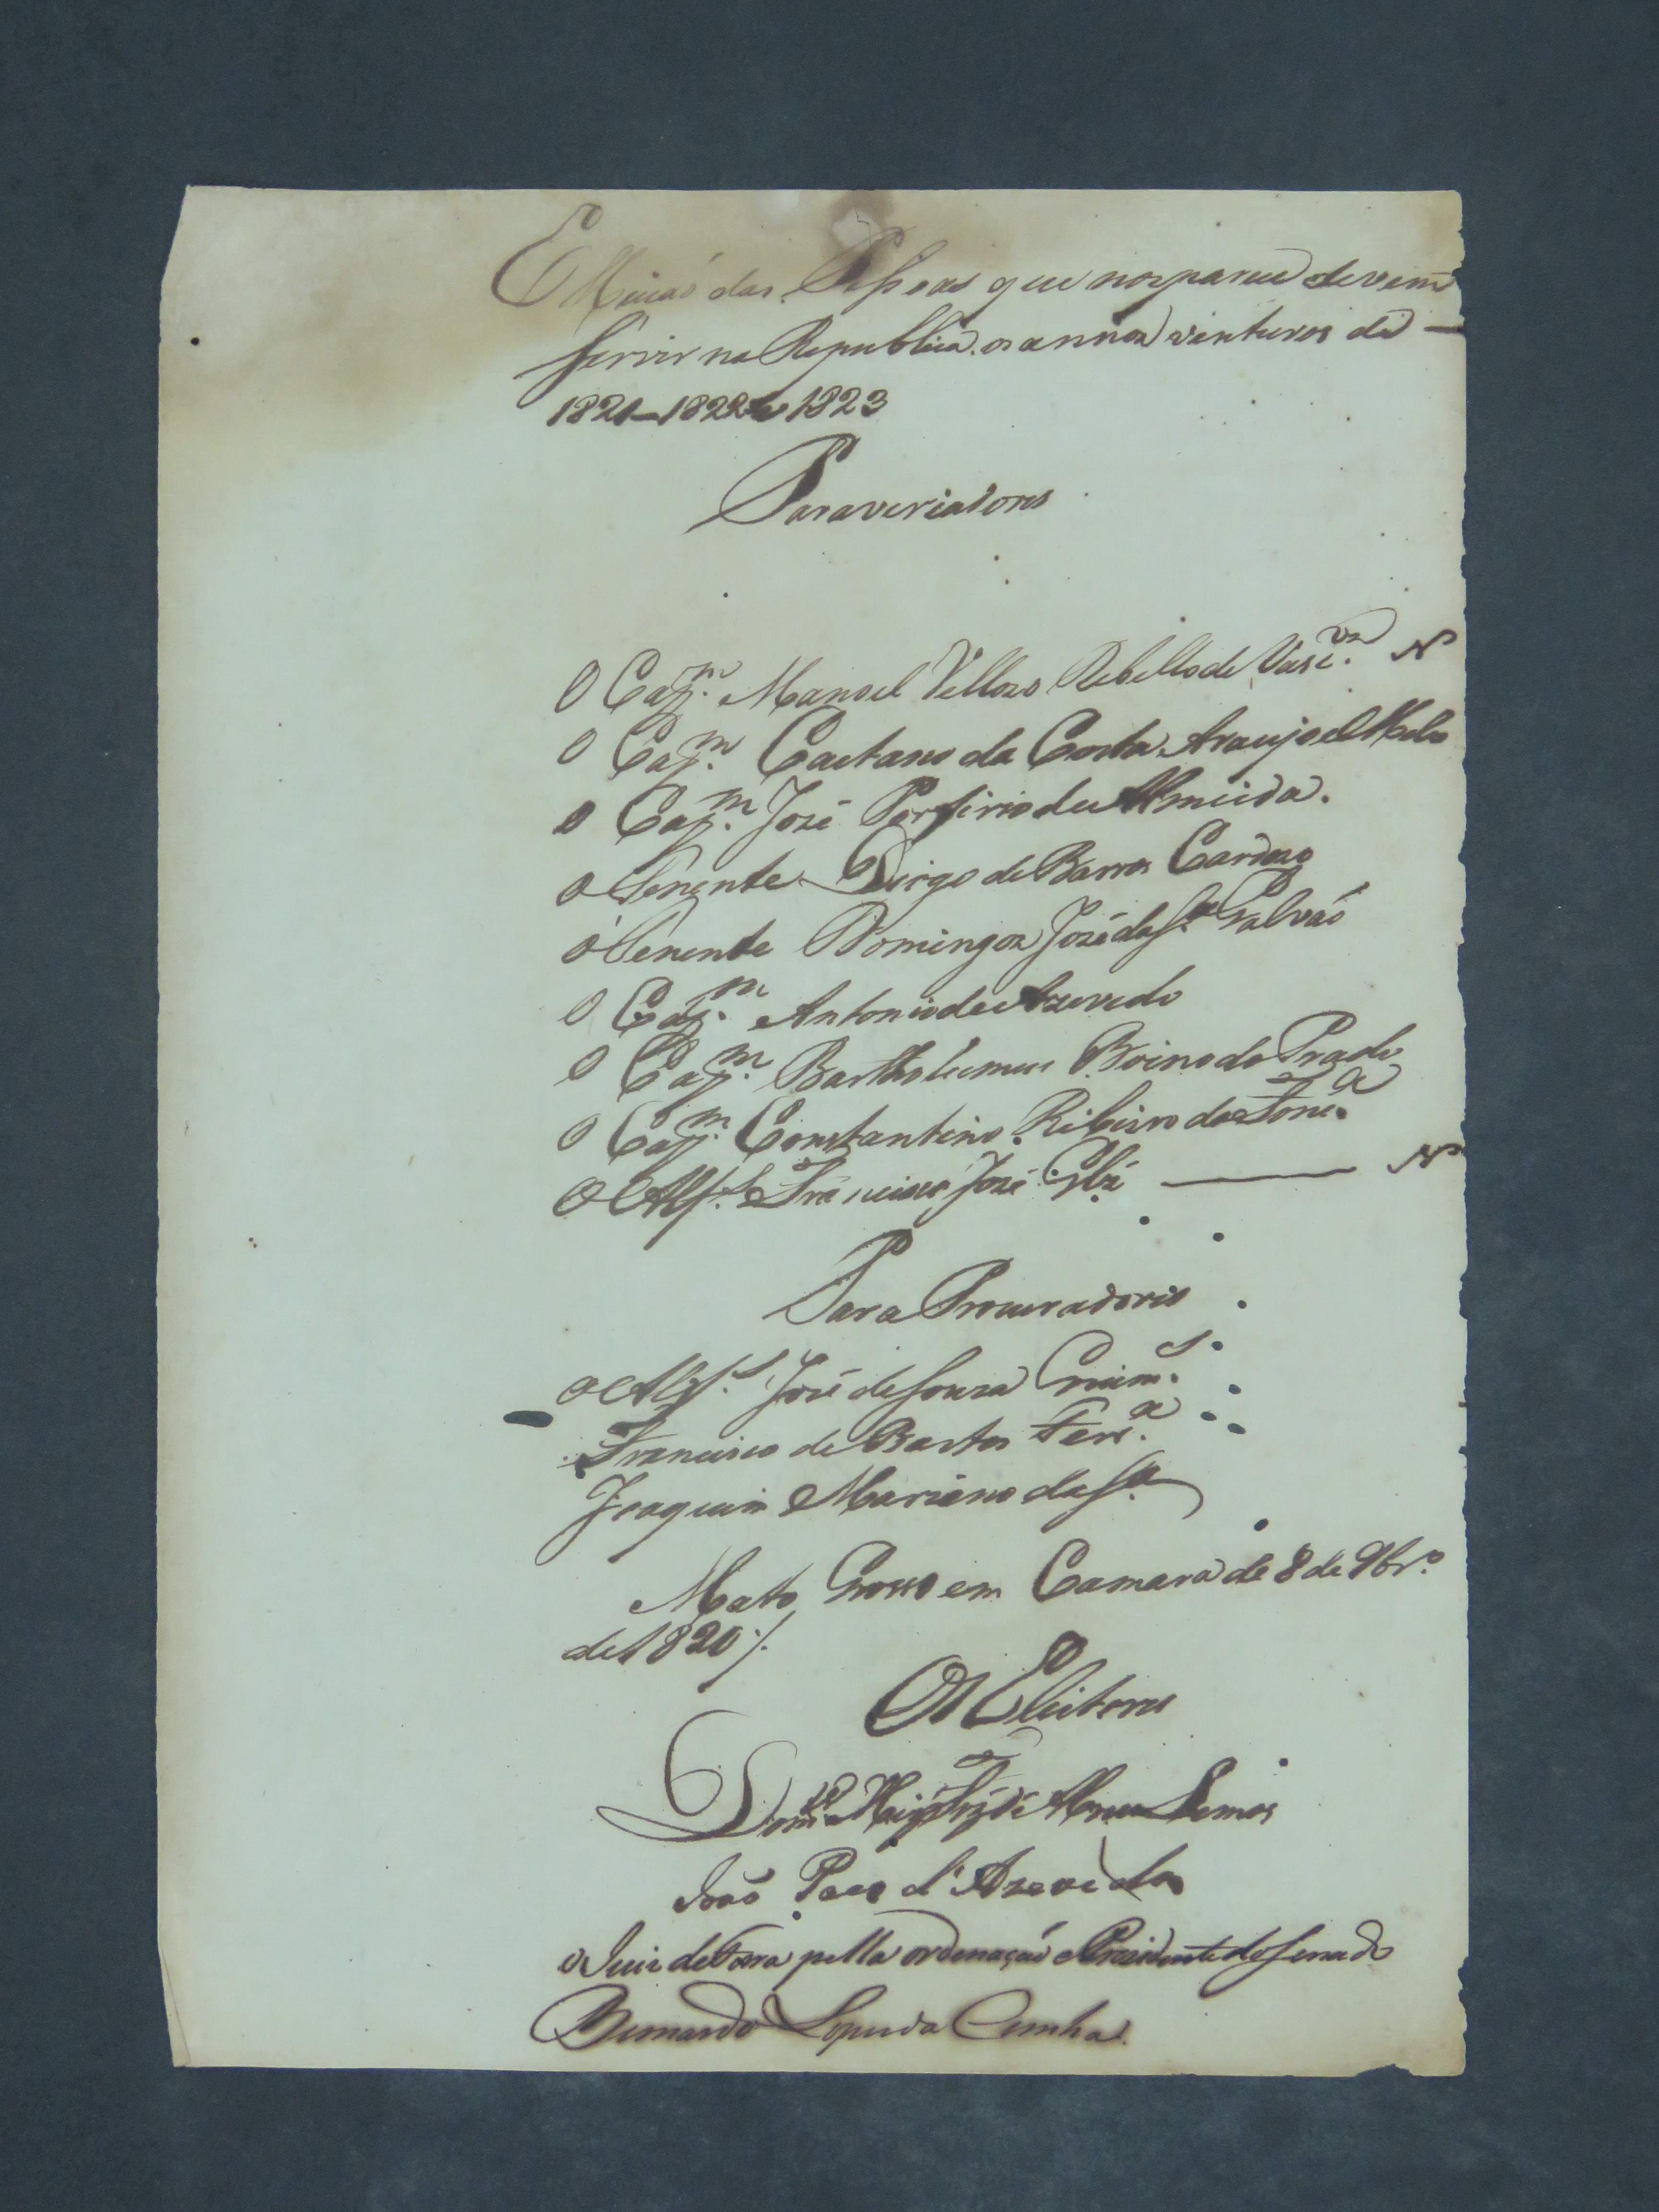 Elleicaó das Pessoas que nos parece devem
servir na Republica os annos vinturos de —
1821 — 1822 e 1823
Para veriadores
O Cap.m Manoel Vellozo Rebello de Vasc.os N
O Cap.m Caetano da Costa Araujo e Mello
O Cap.m José Porfirio de Almeida.
O Tenente Diogo de Barros Cardozo
O Tenente Domingos José da S.a Galvaó
O Cap.m Antonio de Azevedo
O Cap.m Bartholemeu Boino do Prado
O Cap.m Constantino Ribeiro da Fon.ca
O Alf.s Francisco José — N
Para Procuradores
O Alf.s José de Souza Guim.s
Francisco de Bastos Ferr.a
Joaquim Mariano da S.a
Mato Grosso em Camara de 8 de 9br.o
de 1820 ./.
Os Eleitores
Lemos
João Paes d'Azevedo
O Juiz de Fora pella ordenação e Prezidente do Senado
Bernardo Lopes da Cunha.